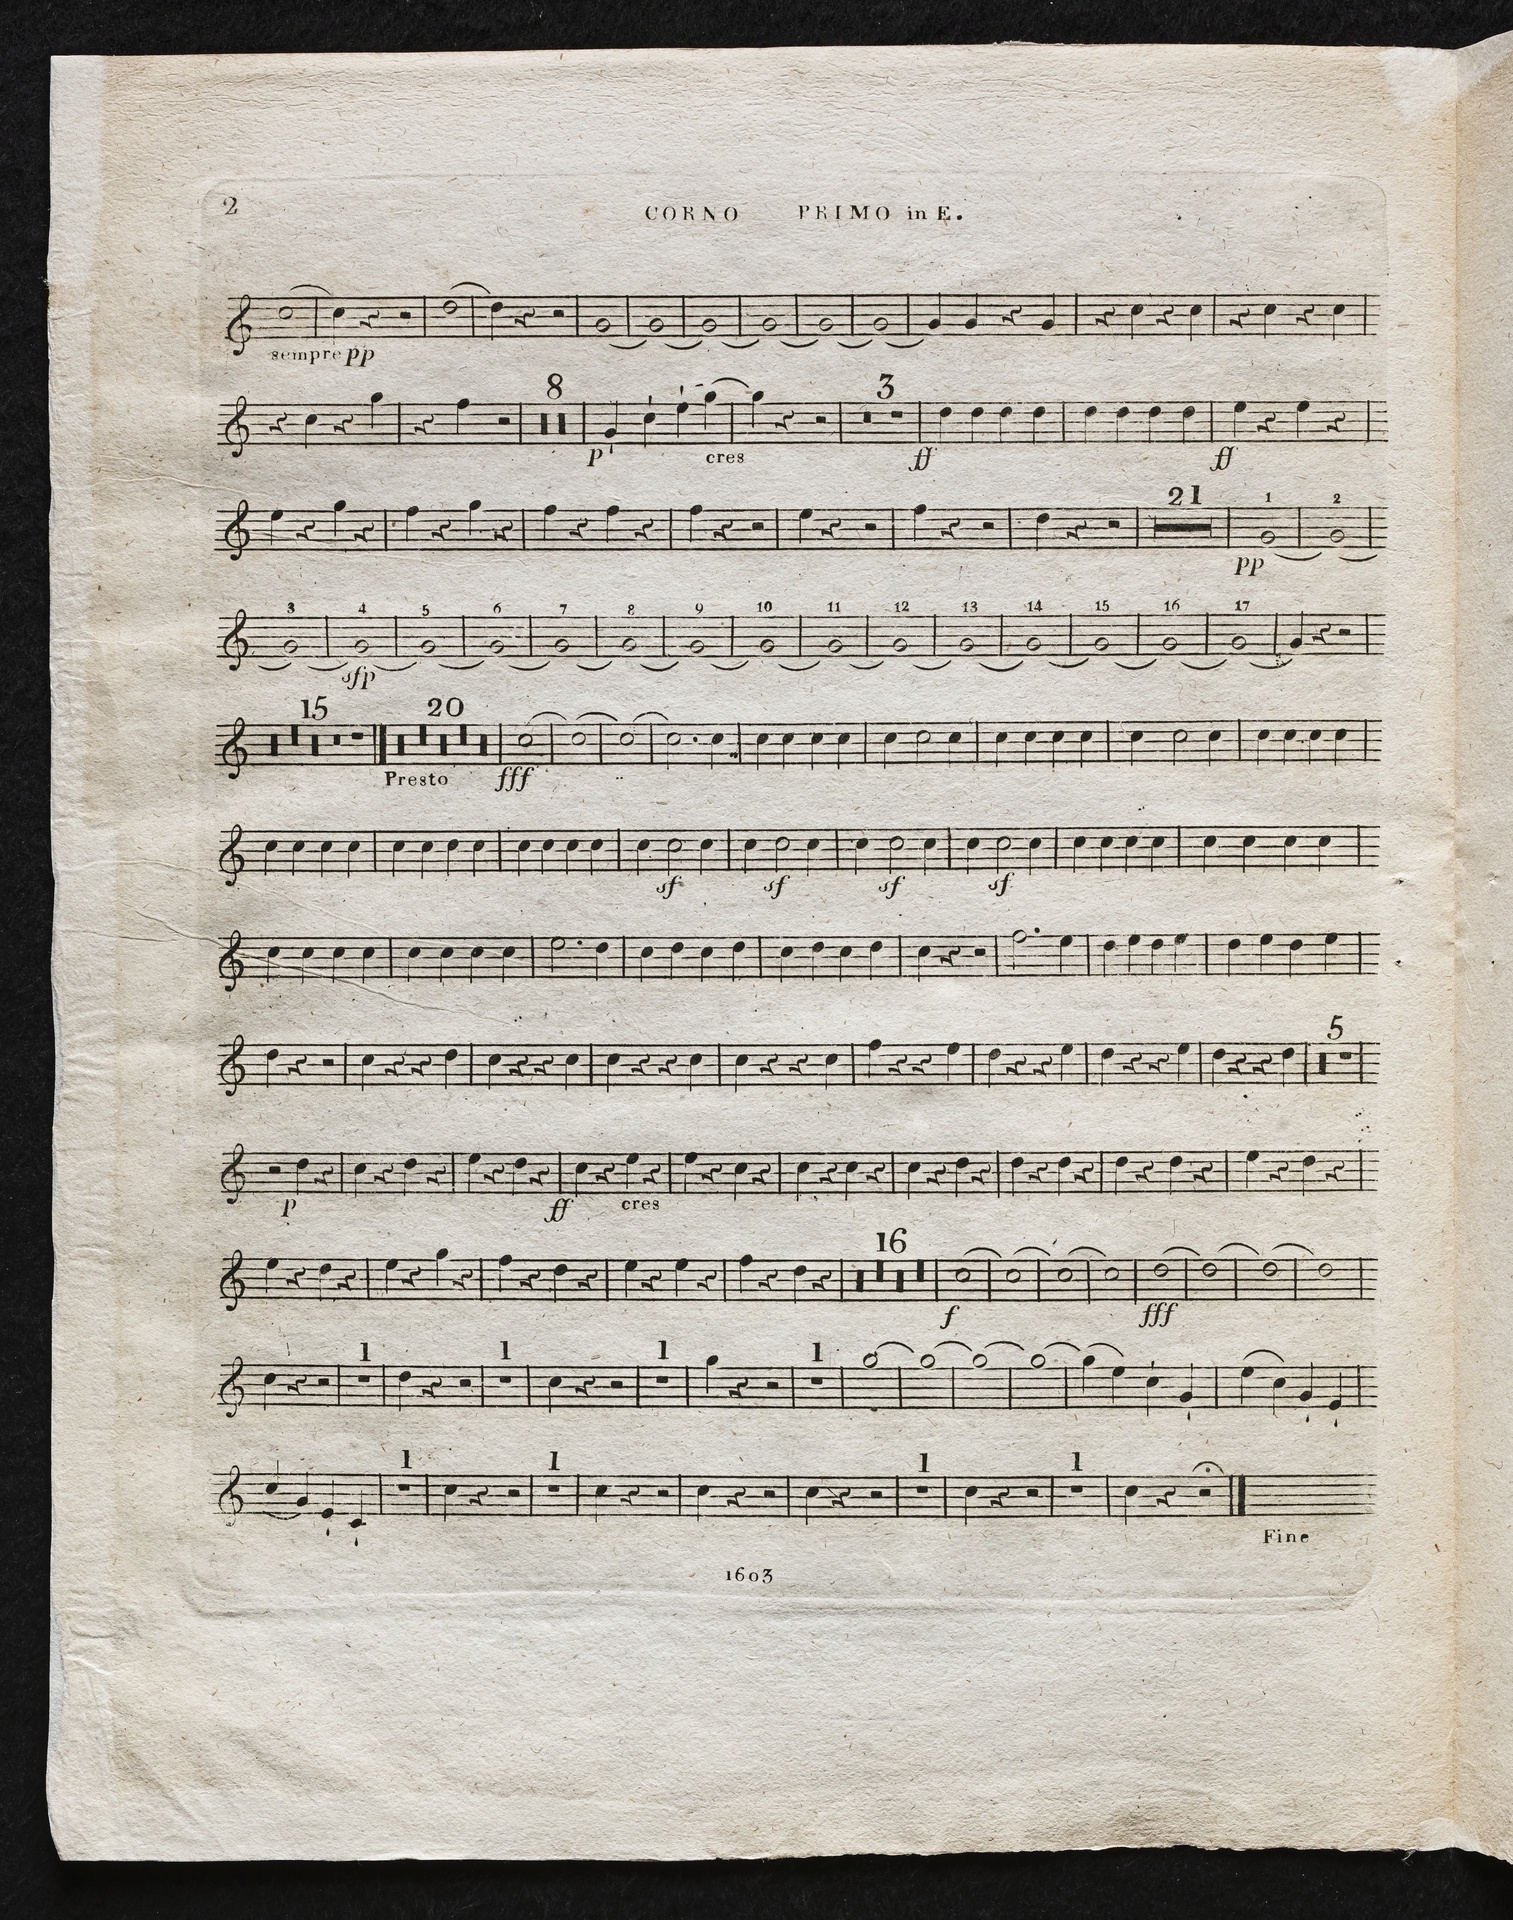 2
CORNO PRIMO in E.
sempre pp
8 3
p cres ff ff
21 1 2
pp
3 4 5 6 7 8 9 10 11 12 13 14 15 16 17
sfp
15 20
Presto fff
sf sf sf sf
5
p ff cres
16
f fff
1 1 1 1
1 1 1 1
Fine
1603